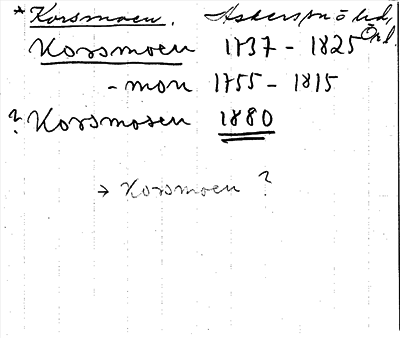 * Korsmoen. Askersund lfs, Ör l.
Korsmoen 1737 - 1825
- mon 1755 - 1815
? Korsmosen 1880
→ Korsmoen ?